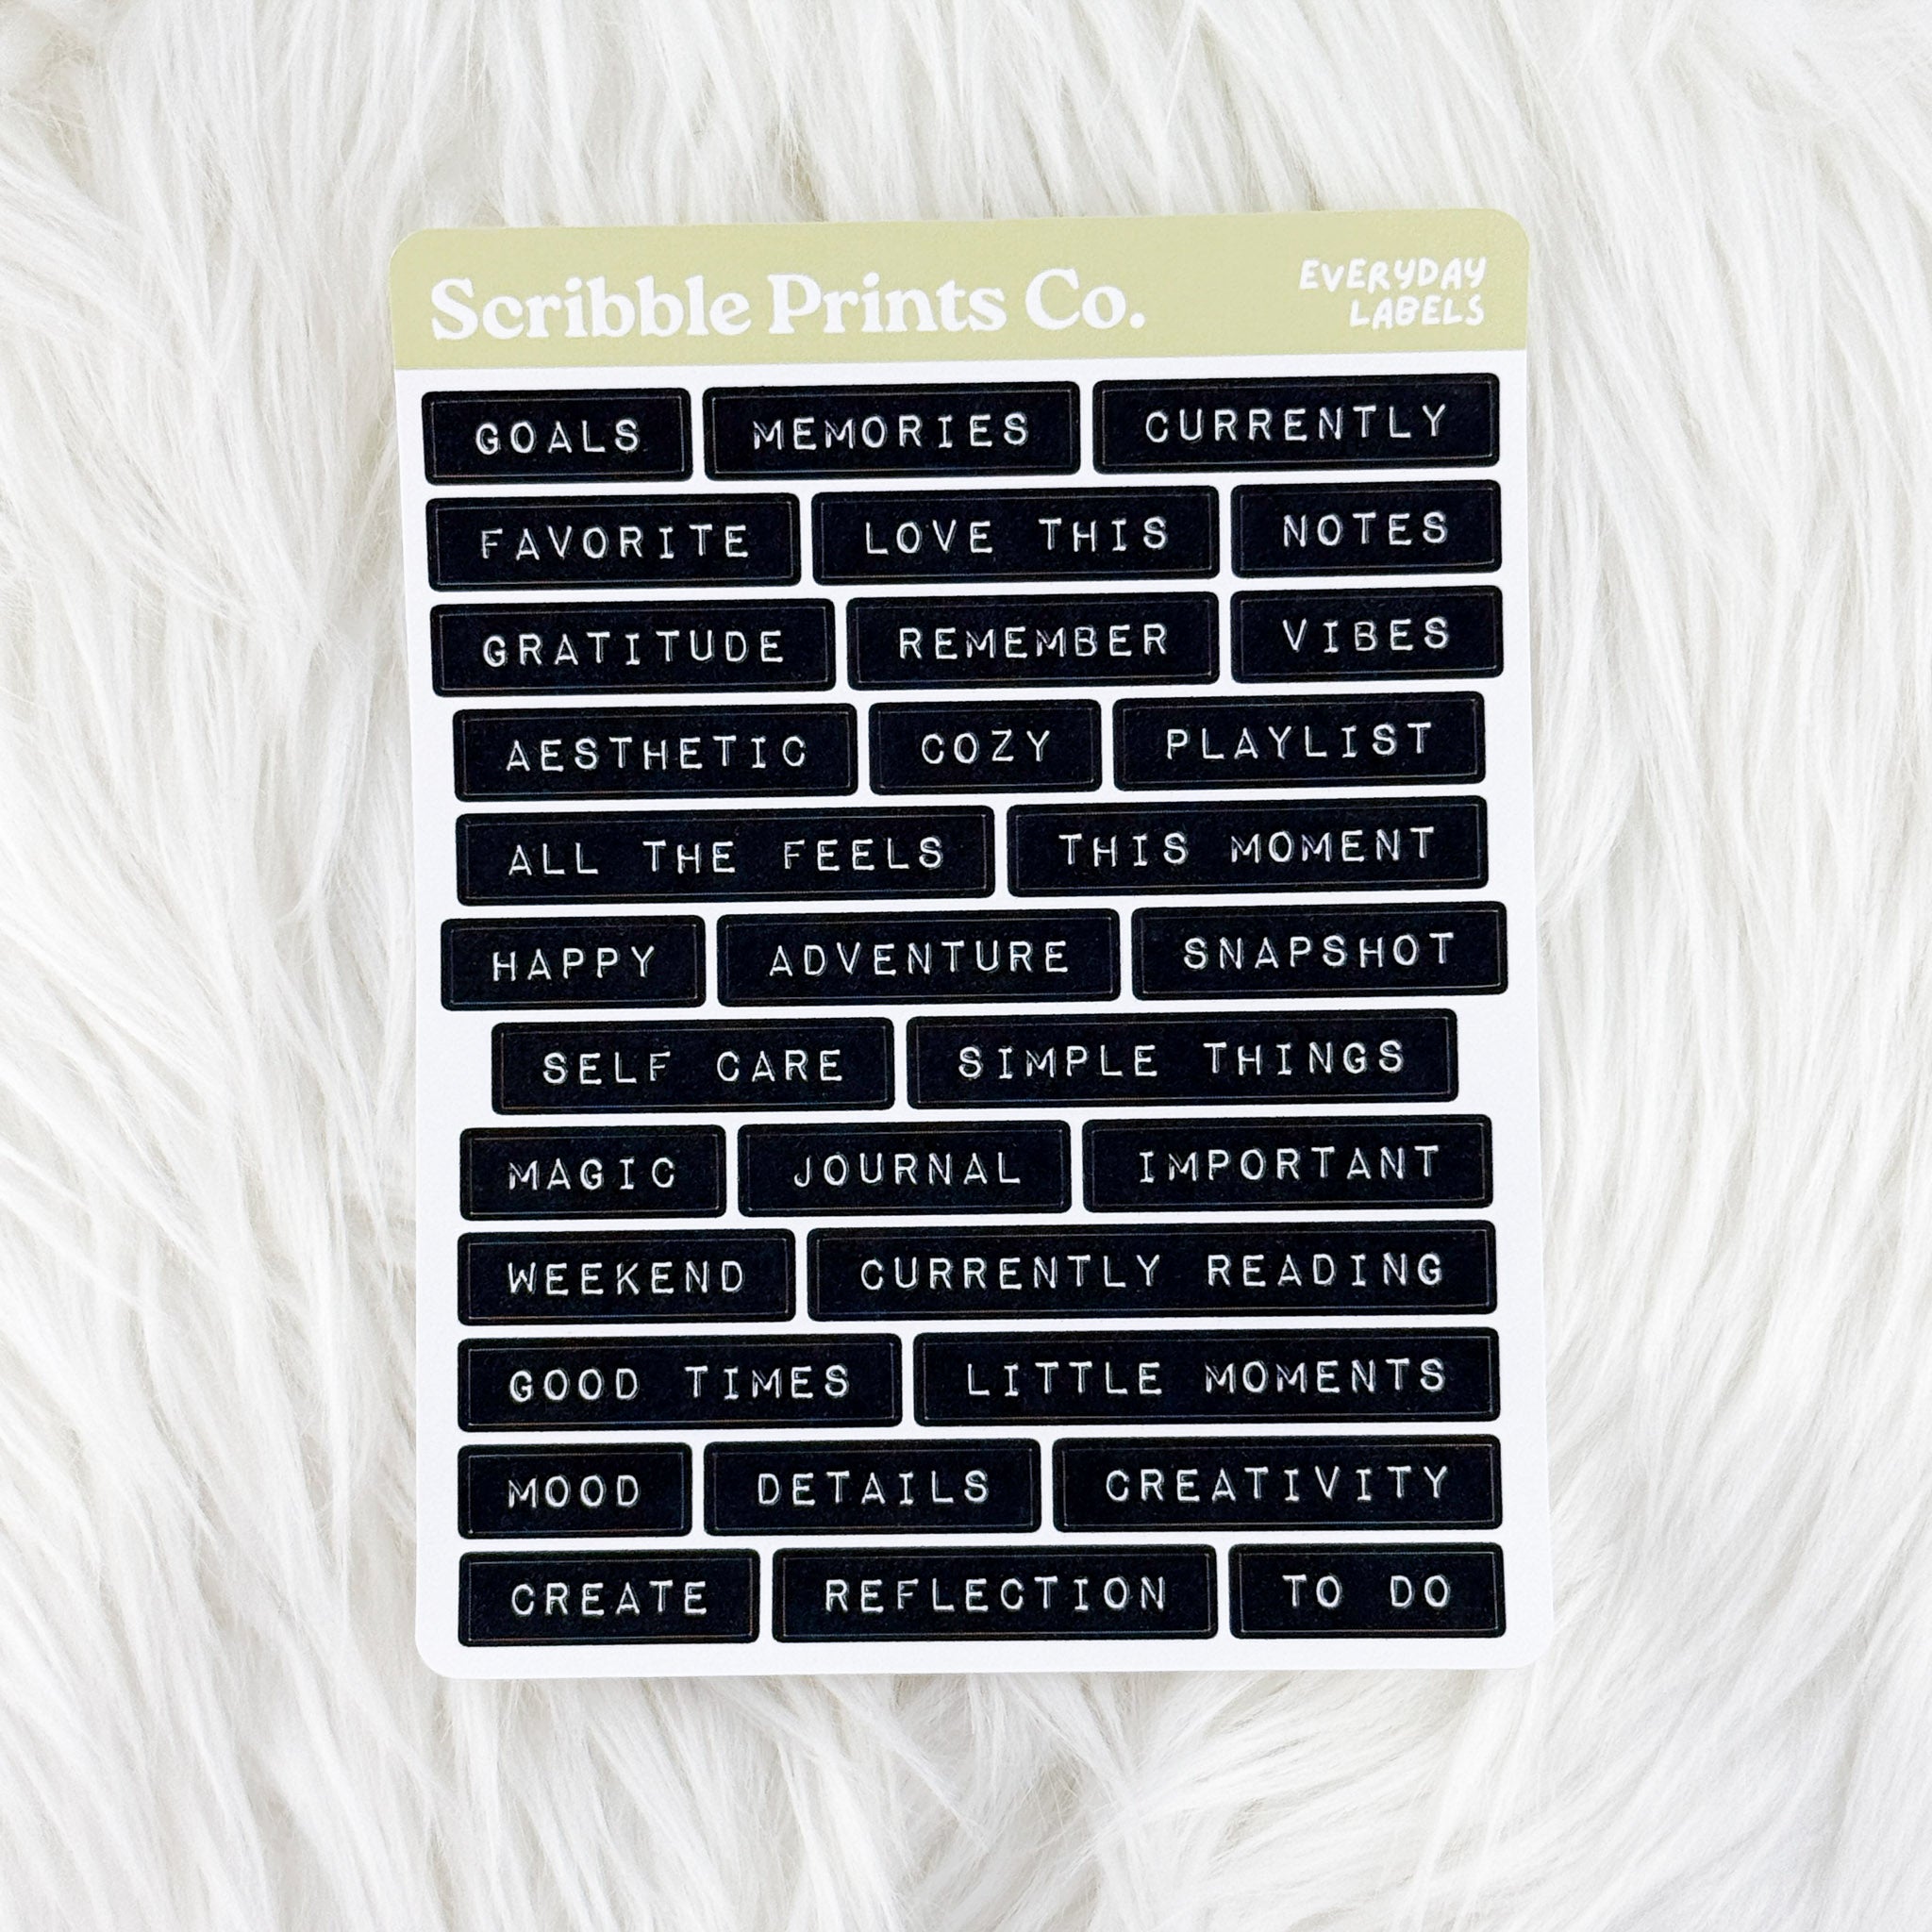 Scribble Prints Co.
EVERYDAY
LABELS
GOALS MEMORIES CURRENTLY
FAVORITE LOVE THIS NOTES
GRATITUDE REMEMBER VIBES
AESTHETIC COZY PLAYLIST
ALL THE FEELS THIS MOMENT
HAPPY ADVENTURE SNAPSHOT
SELF CARE SIMPLE THINGS
MAGIC JOURNAL IMPORTANT
WEEKEND CURRENTLY READING
GOOD TIMES LITTLE MOMENTS
MOOD DETAILS CREATIVITY
CREATE REFLECTION TO DO